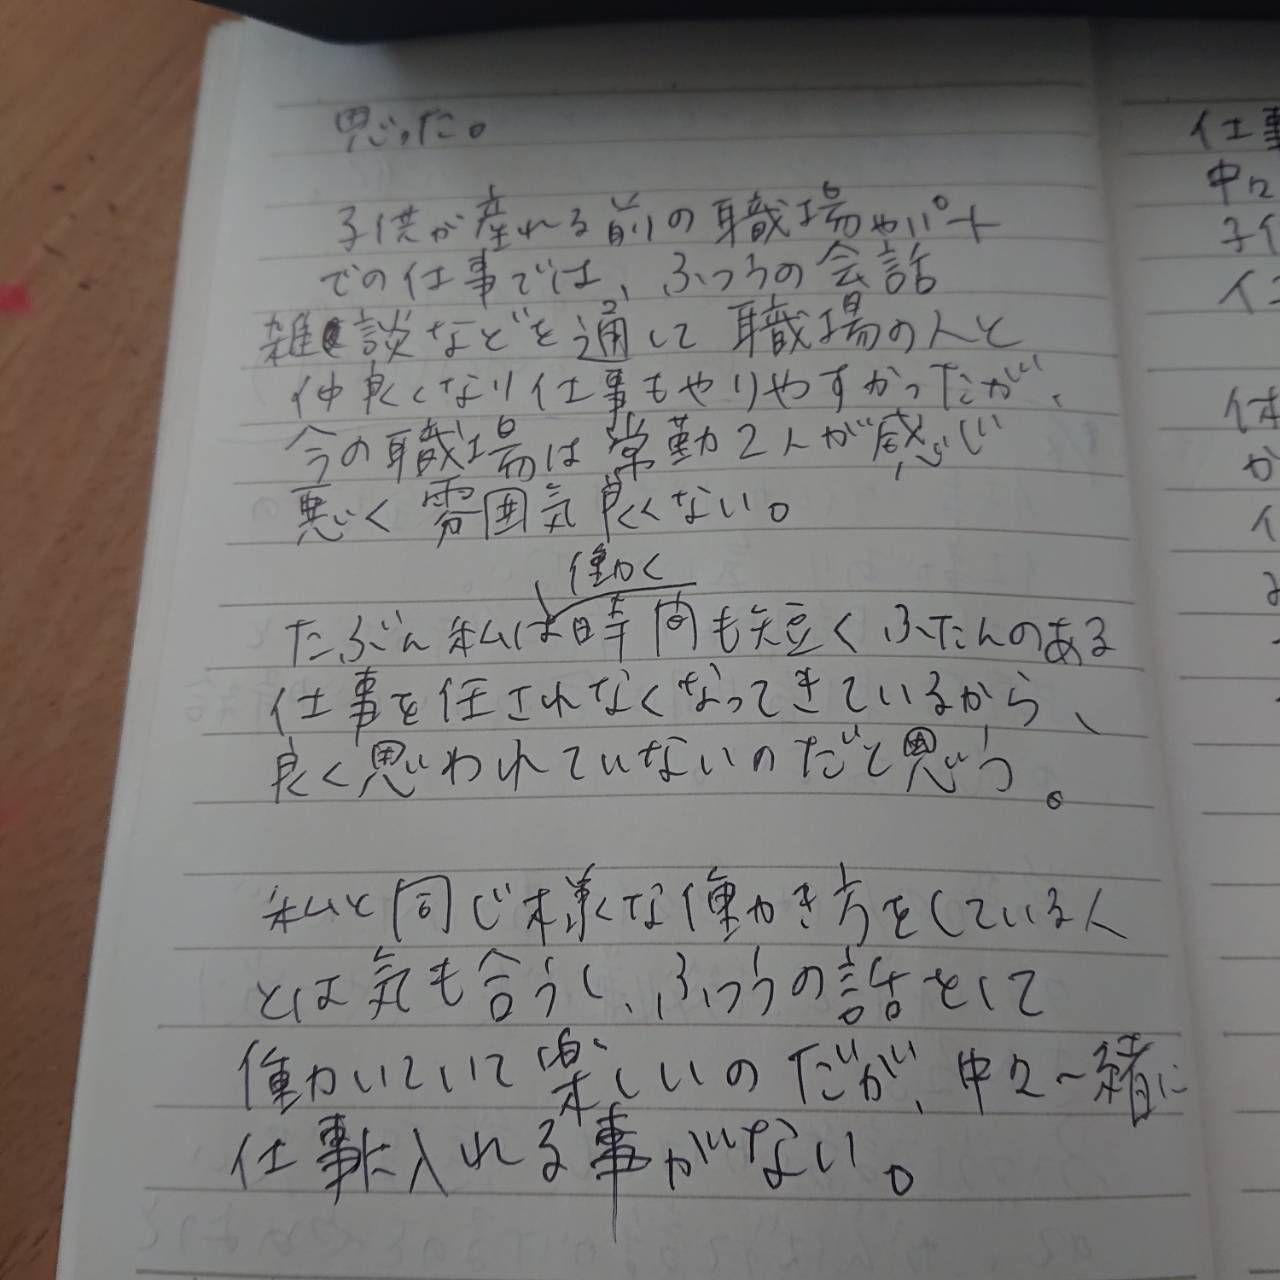 思った。
子供が産れる前の職場やパート
での仕事では、ふつうの会話
雑談などを通して職場の人と
仲良くなり仕事もやりやすかったが、
今の職場は常勤2人が感じ
悪く雰囲気良くない。
働く
たぶん私は時間も短くふたんのある
仕事を任されなくなってきているから、
良く思われていないのだと思う。
私と同じ様な働き方をしている人
とは気も合うし、ふつうの話をして
働いていて楽しいのだが、中々一緒に
仕事に入れる事がない。
仕事
中々
子
体
か